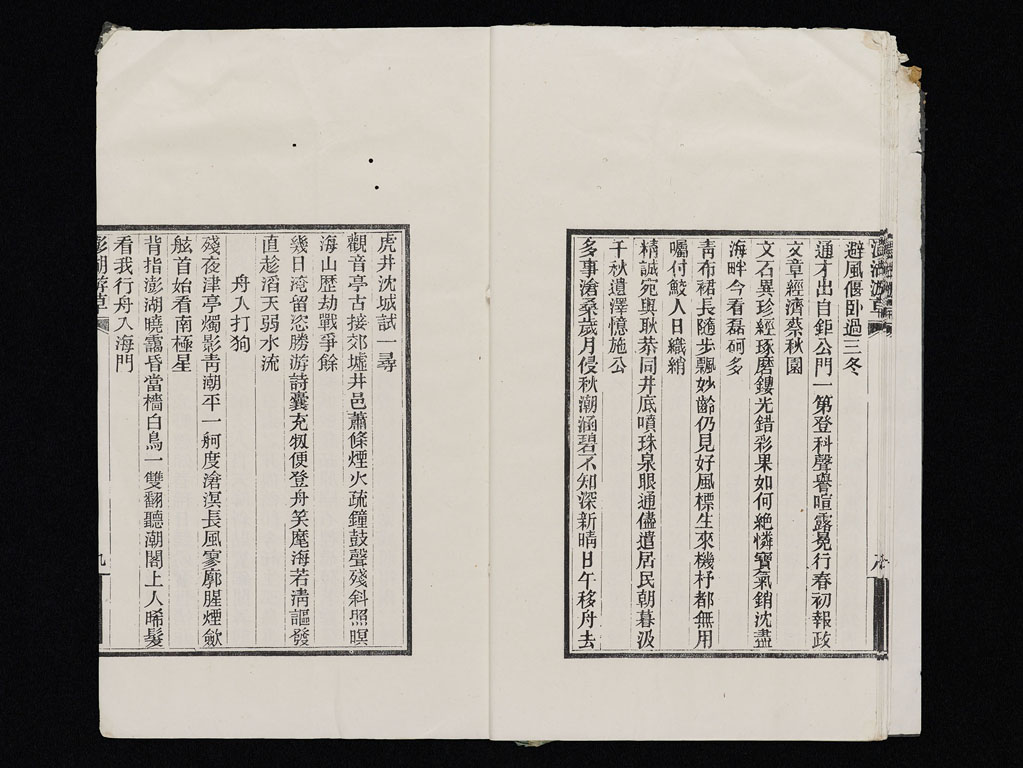 避風偃卧過三冬
通才出自鉅公門一第登科聲譽喧露冕行春初報政
文章經濟蔡秋園
文石異珍經琢磨鏤光錯彩果如何絶憐寶氣銷沈盡
海畔今看磊砢多
靑布裙長隨步飄妙齡仍見好風標生來機杼都無用
囑付鮫人日織綃
精誠宛與耿恭同井底噴珠泉眼通儘遣居民朝暮汲
千秋遺澤憶施公
多事滄桑歲月侵秋潮涵碧不知深新晴日午移舟去
虎井沈城試一尋
觀音亭古接郊墟井邑蕭條煙火疏鐘鼓聲殘斜照暝
海山歷劫戰爭餘
幾日淹留恣勝游詩囊充牣便登舟笑麾海若淸謳發
直趁滔天弱水流
舟入打狗
殘夜津亭燭影靑潮平一舸度滄溟長風寥廓腥煙歛
舷首始看南極星
背指澎湖曉靄昏當檣白鳥一雙翻聽潮閣上人晞髮
看我行舟入海門
澎湖游草
九